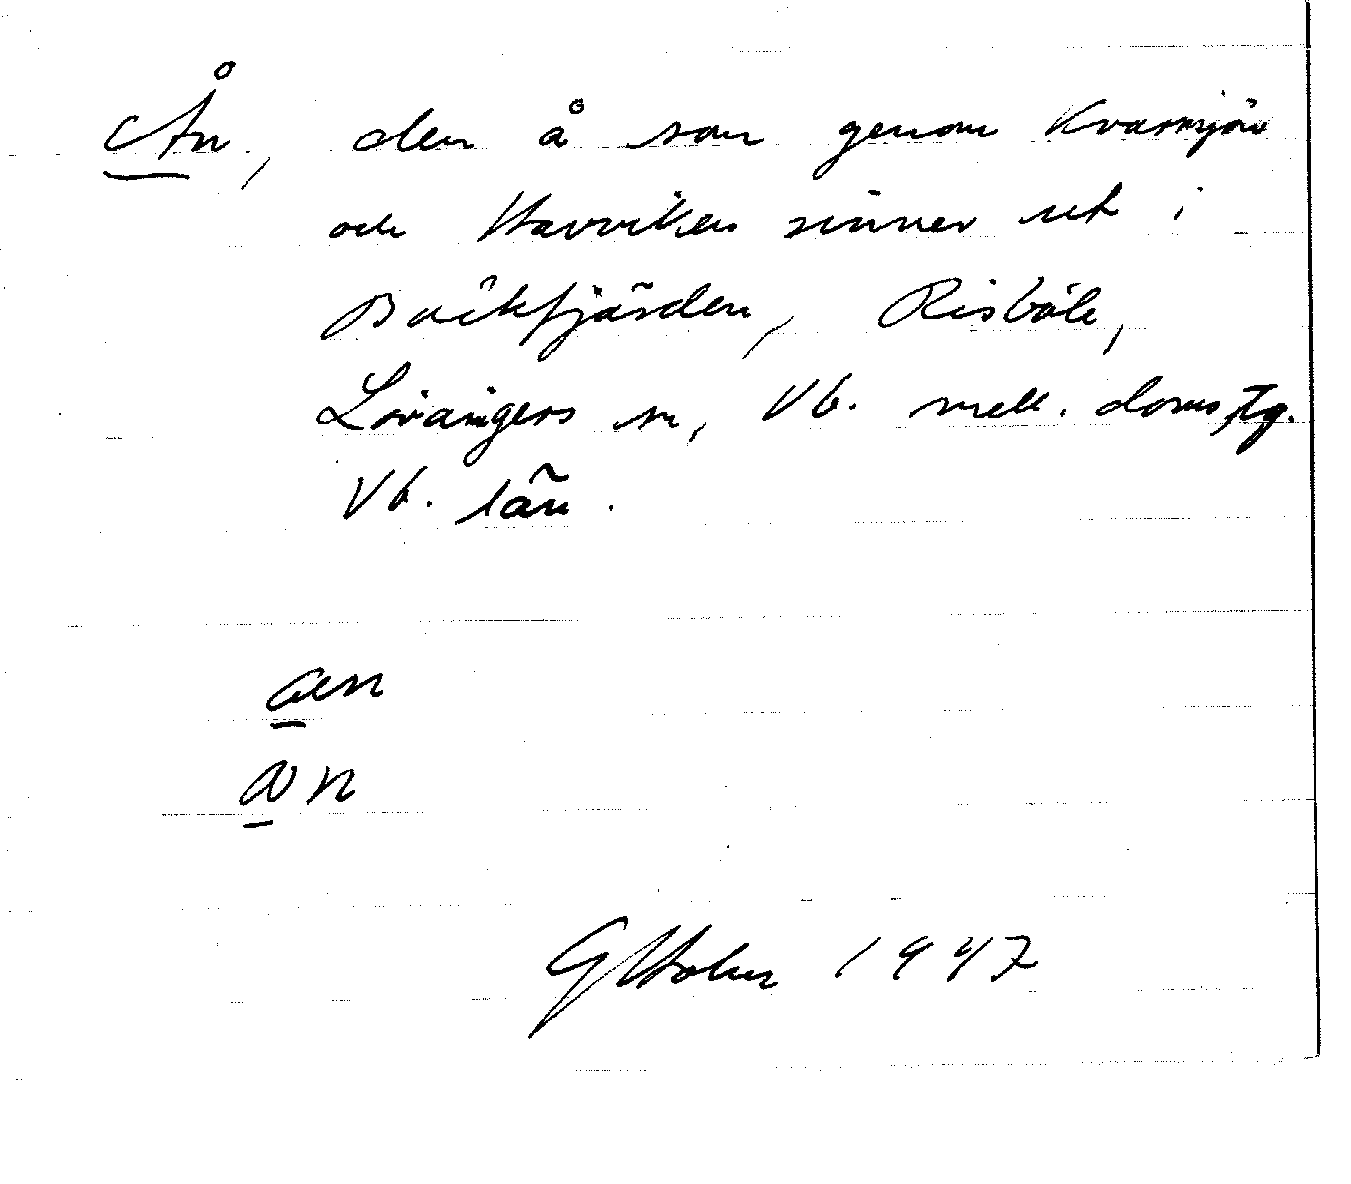 Ån, den å som genom Kvarnsjön
och Havviken rinner ut i
Bäckfjärden, Risböle,
Lövångers sn, Vb. mell. doms, tg.
Vb. län.
aen
n
GHolm 1947